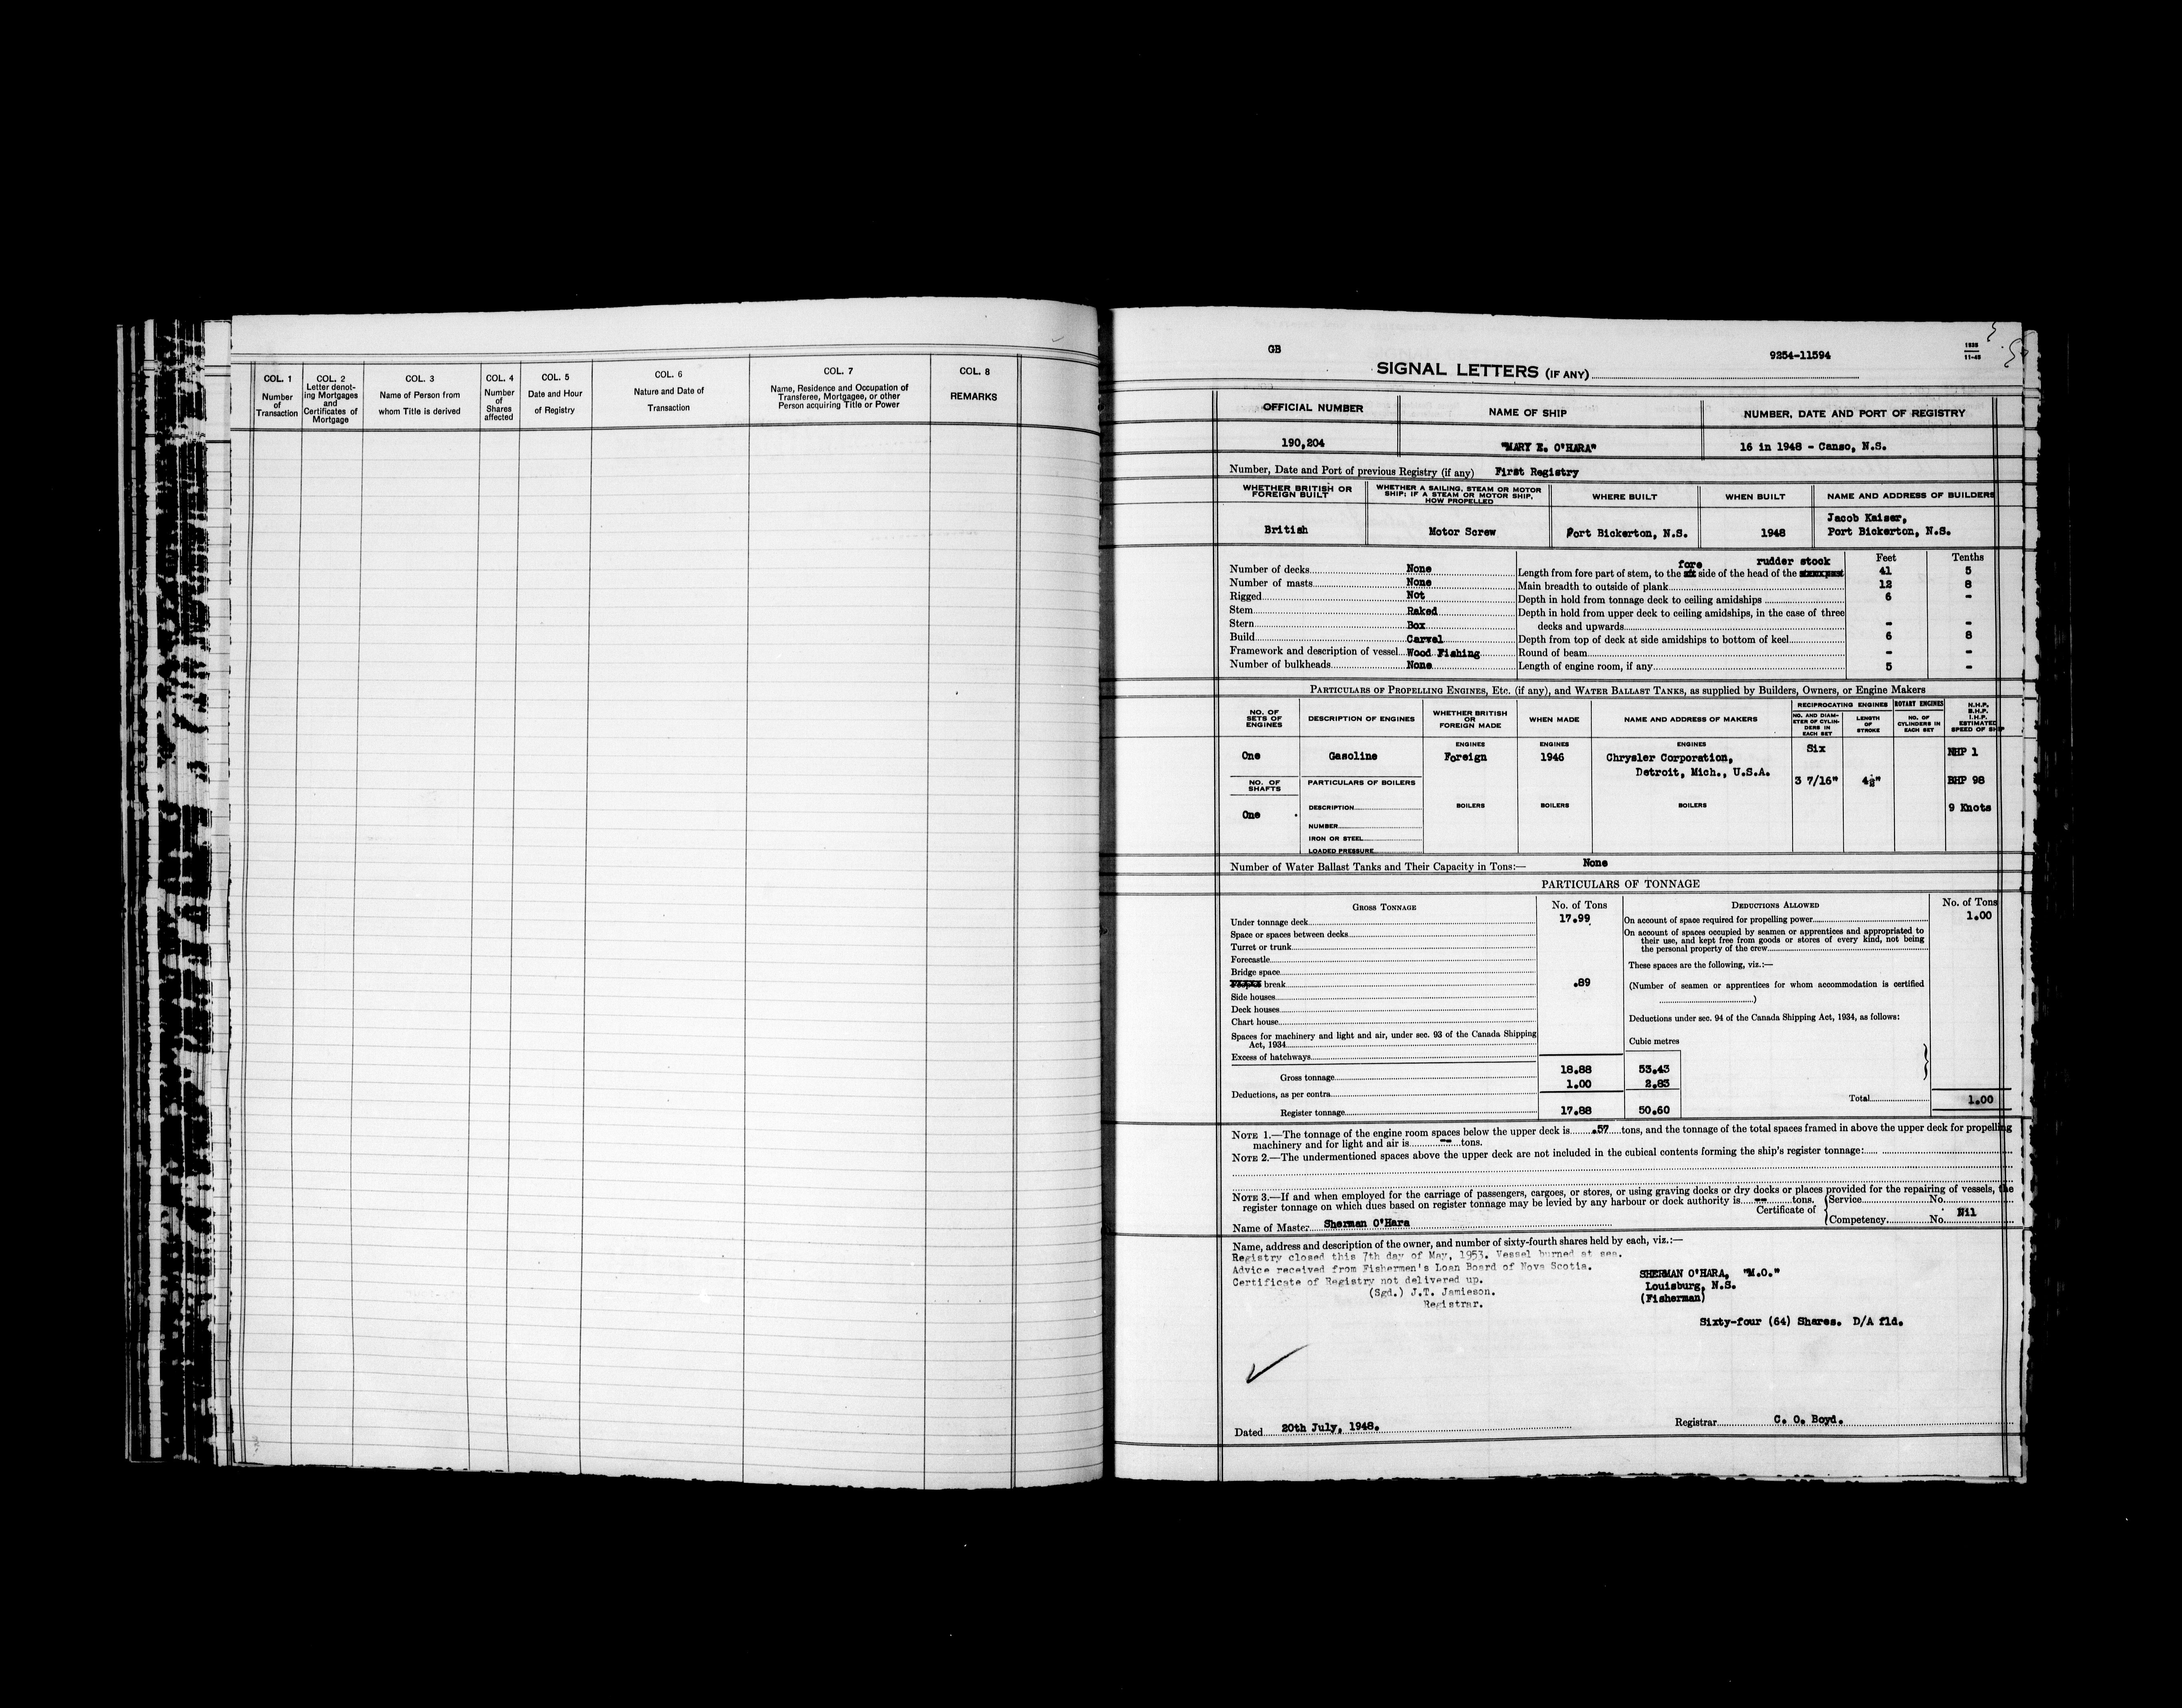 COL. 1
Number
of
Transaction
COL. 2
Letter denot-
ing Mortgages
and
Certificates of
Mortgage
COL. 3
Name of Person from
whom Title is derived
COL. 4
Number
of
Shares
affected
COL. 5
Date and Hour
of Registry
COL. 6
Nature and Date of
Transaction
COL. 7
Name, Residence and Occupation of
Transferee, Mortgagee, or other
Person acquiring Title or Power
COL. 8
REMARKS
GB
9254-11594
SIGNAL LETTERS (IF ANY)
OFFICIAL NUMBER
NAME OF SHIP
NUMBER, DATE AND PORT OF REGISTRY
190,204
"MARY E. O'HARA"
16 in 1948 - Canso, N.S.
Number, Date and Port of previous Registry (if any) First Registry
WHETHER BRITISH OR
FOREIGN BUILT
WHETHER A SAILING, STEAM OR MOTOR
SHIP; IF A STEAM OR MOTOR SHIP,
HOW PROPELLED
WHERE BUILT
WHEN BUILT
NAME AND ADDRESS OF BUILDERS
British
Motor Screw
Port Bickerton, N.S.
1948
Jacob Kaiser,
Port Bickerton, N.S.
Number of decks None
Number of masts None
Rigged Not
Stem Raked
Stern Box
Build Carvel
Framework and description of vessel Wood Fishing
Number of bulkheads None
Feet Tenths
fore rudder stock
Length from fore part of stem, to the side of the head of the 41 5
Main breadth to outside of plank 12 8
Depth in hold from tonnage deck to ceiling amidships 6 -
Depth in hold from upper deck to ceiling amidships, in the case of three
decks and upwards - -
Depth from top of deck at side amidships to bottom of keel 6 8
Round of beam - -
Length of engine room, if any 5 -
PARTICULARS OF PROPELLING ENGINES, Etc. (if any), and WATER BALLAST TANKS, as supplied by Builders, Owners, or Engine Makers
NO. OF
SETS OF
ENGINES
DESCRIPTION OF ENGINES
WHETHER BRITISH
OR
FOREIGN MADE
WHEN MADE
NAME AND ADDRESS OF MAKERS
RECIPROCATING ENGINES
NO. AND DIAM-
ETER OF CYLIN-
DERS IN
EACH SET
LENGTH
OF
STROKE
ROTARY ENGINES
NO. OF
CYLINDERS IN
EACH SET
N.H.P.
B.H.P.
I.H.P.
ESTIMATED
SPEED OF SHIP
ENGINES ENGINES ENGINES
One Gasoline Foreign 1946
Chrysler Corporation,
Detroit, Mich., U.S.A.
Six
3 7/16" 4½"
NHP 1
BHP 98
9 Knots
NO. OF
SHAFTS
One
PARTICULARS OF BOILERS
DESCRIPTION
NUMBER
IRON OR STEEL
LOADED PRESSURE
BOILERS BOILERS BOILERS
Number of Water Ballast Tanks and Their Capacity in Tons:— None
PARTICULARS OF TONNAGE
GROSS TONNAGE No. of Tons
Under tonnage deck 17.99
Space or spaces between decks
Turret or trunk
Forecastle
Bridge space
break .89
Side houses
Deck houses
Chart house
Spaces for machinery and light and air, under sec. 93 of the Canada Shipping
Act, 1934
Excess of hatchways
Gross tonnage 18.88 53.43
Deductions, as per contra 1.00 2.83
Register tonnage 17.88 50.60
DEDUCTIONS ALLOWED No. of Tons
On account of space required for propelling power 1.00
On account of spaces occupied by seamen or apprentices and appropriated to
their use, and kept free from goods or stores of every kind, not being
the personal property of the crew
These spaces are the following, viz.:—
(Number of seamen or apprentices for whom accommodation is certified
)
Deductions under sec. 94 of the Canada Shipping Act, 1934, as follows:
Cubic metres
Total 1.00
NOTE 1.—The tonnage of the engine room spaces below the upper deck is .57 tons, and the tonnage of the total spaces framed in above the upper deck for propelling
machinery and for light and air is -- tons.
NOTE 2.—The undermentioned spaces above the upper deck are not included in the cubical contents forming the ship's register tonnage:
NOTE 3.—If and when employed for the carriage of passengers, cargoes, or stores, or using graving docks or dry docks or places provided for the repairing of vessels, the
register tonnage on which dues based on register tonnage may be levied by any harbour or dock authority is -- tons.
Certificate of
Service No.
Competency No.
Nil
Name of Master Sherman O'Hara
Name, address and description of the owner, and number of sixty-fourth shares held by each, viz.:—
Registry closed this 7th day of May, 1953. Vessel burned at sea.
Advice received from Fishermen's Loan Board of Nova Scotia.
Certificate of Registry not delivered up.
(Sgd.) J.T. Jamieson.
Registrar.
SHERMAN O'HARA, "M.O."
Louisburg, N.S.
(Fisherman)
Sixty-four (64) Shares. D/A fld.
Dated 20th July, 1948.
Registrar C. O. Boyd.